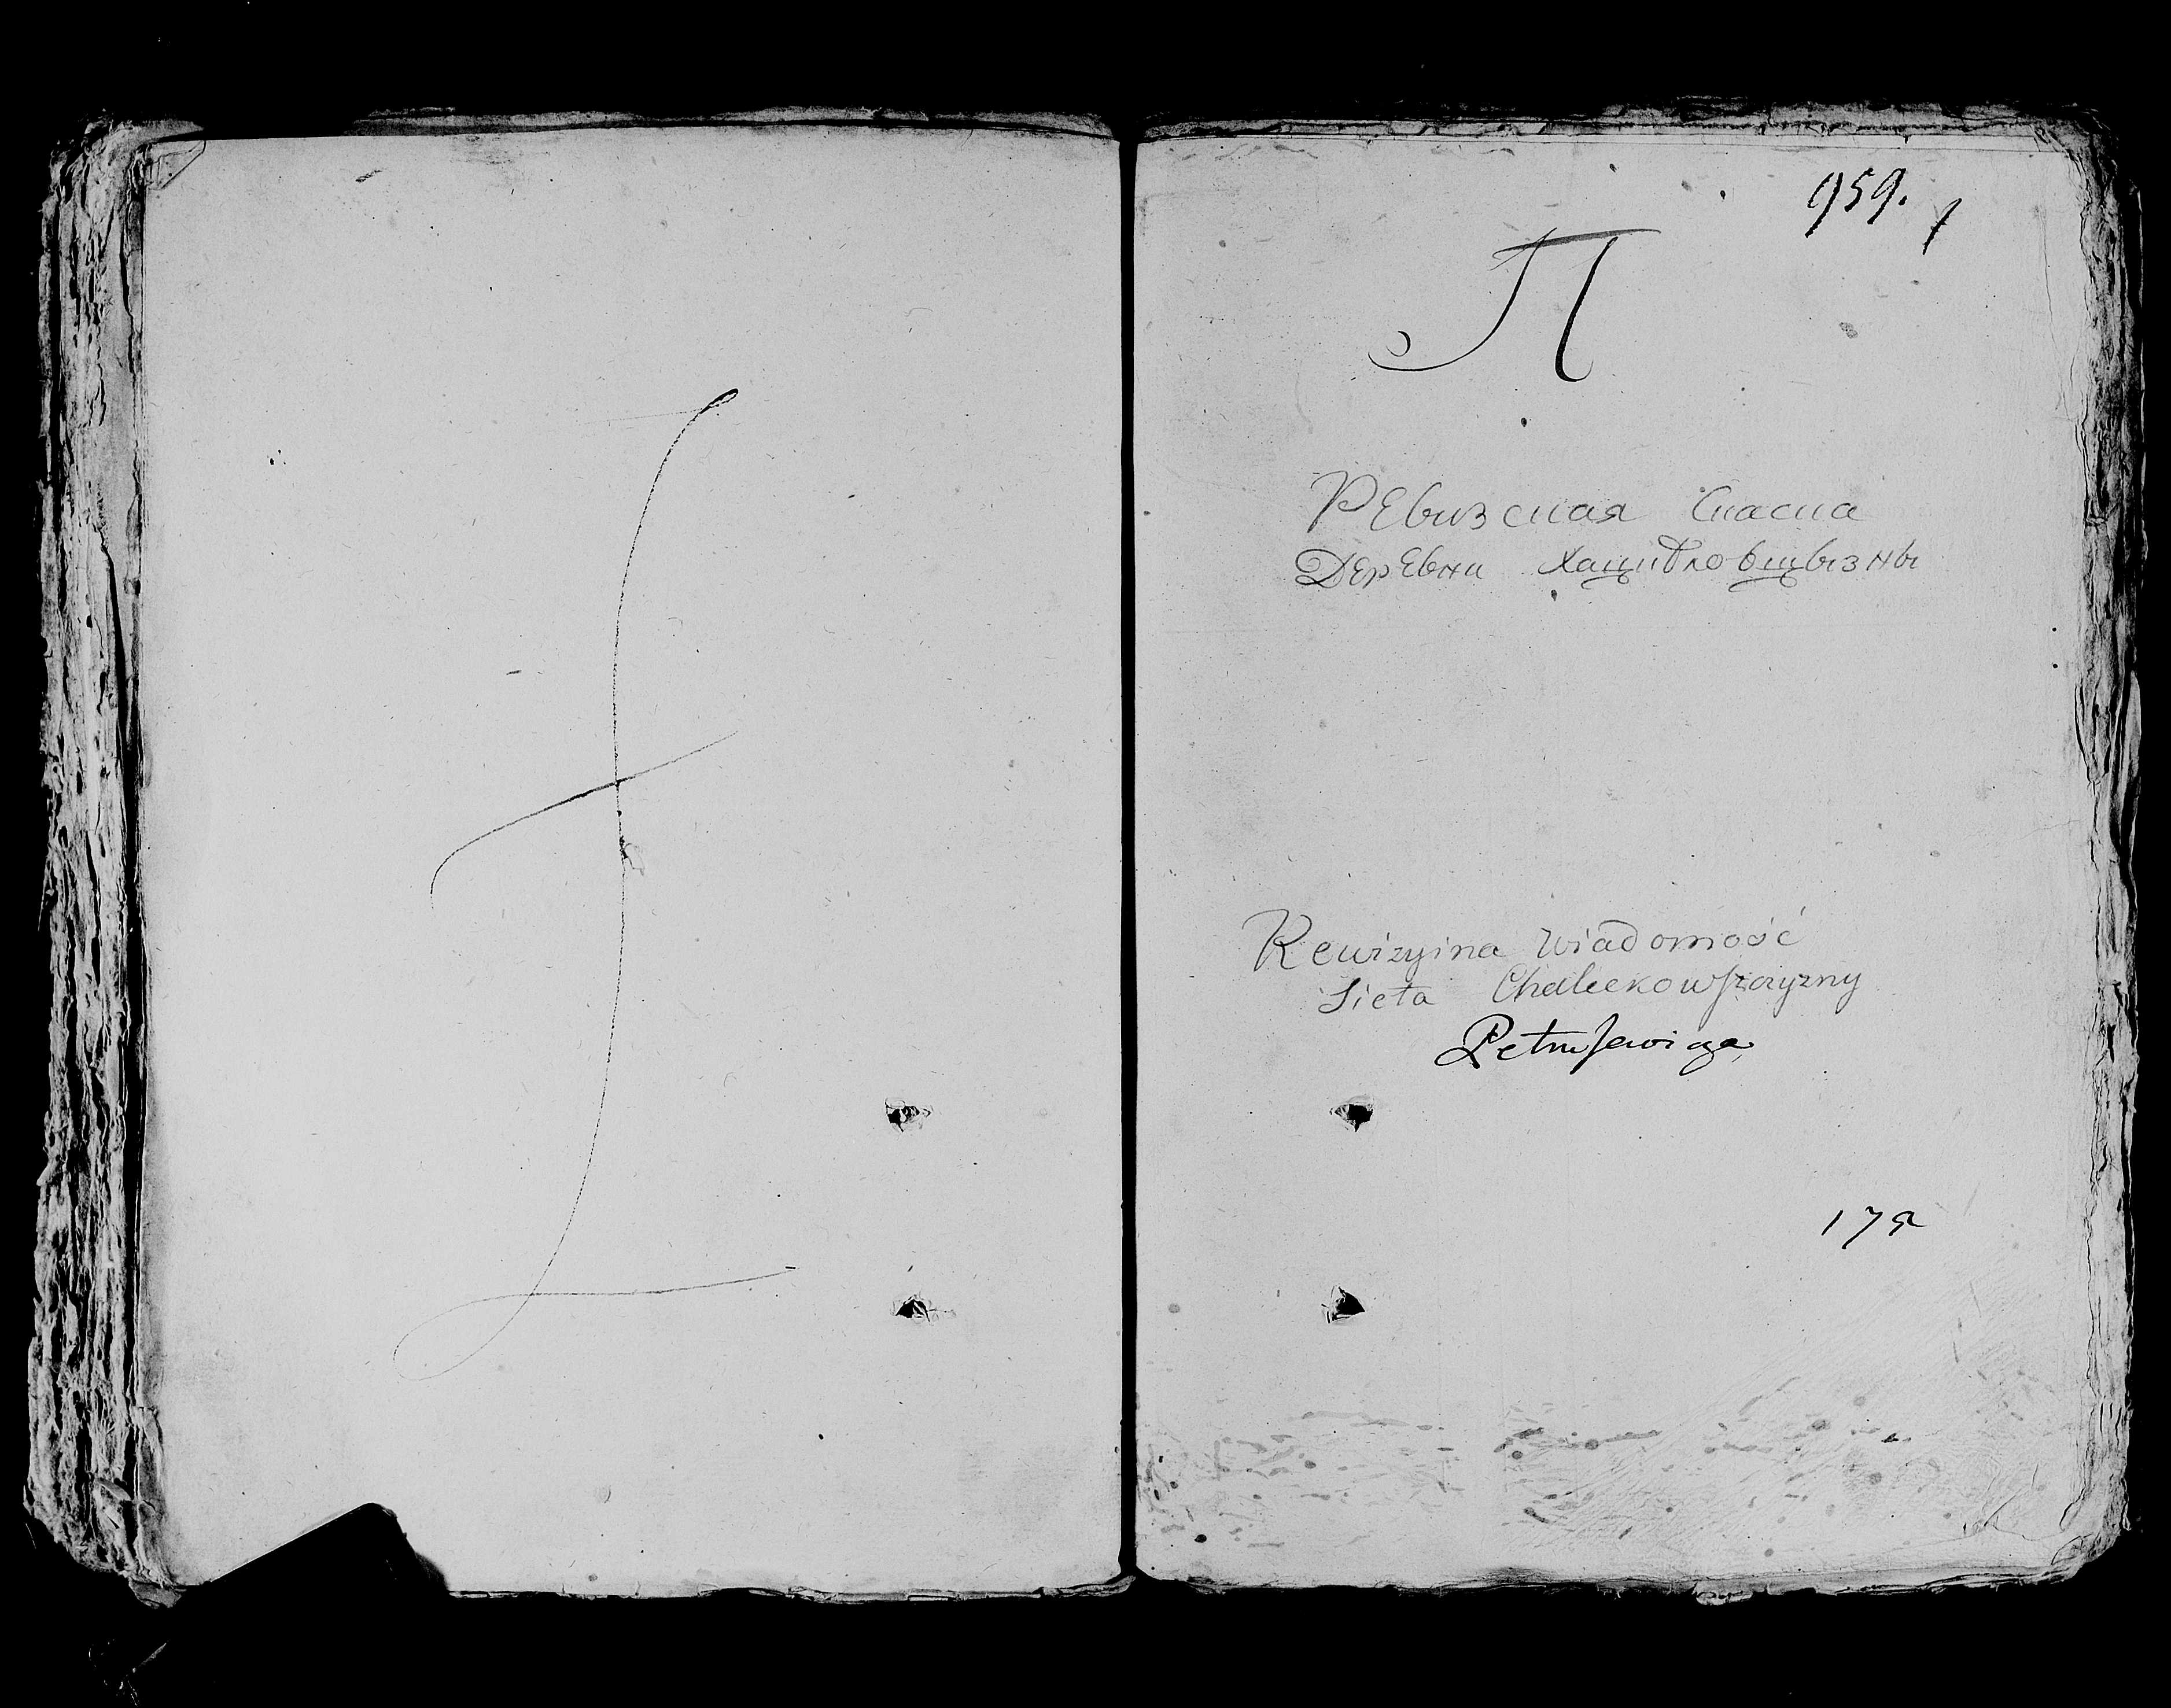 959. 1
П
Ревизская Скаска
Деревни
Rewizyina Wiadomość
Sieła Chaleckowszczyzny
Petrusewicza
179